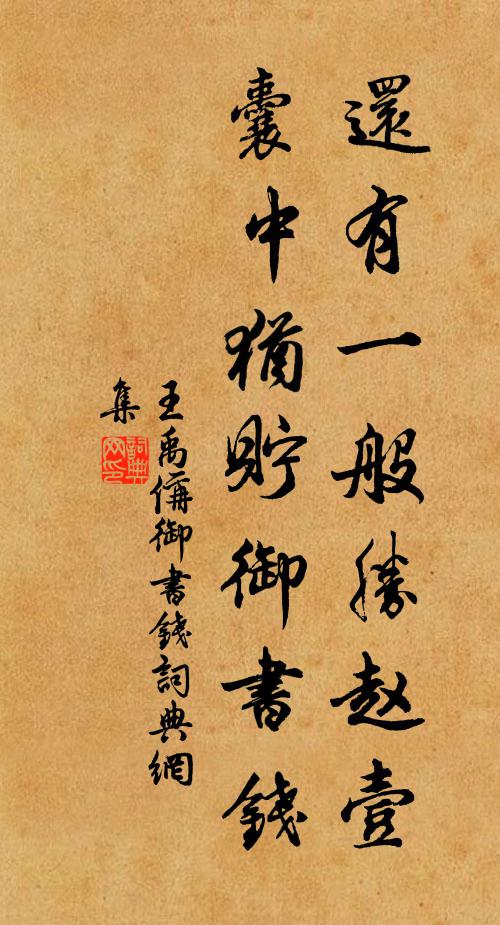 還有一般勝赵壹
囊中猶貯御書錢
王禹偁御書錢詞典網
集
詞典网印